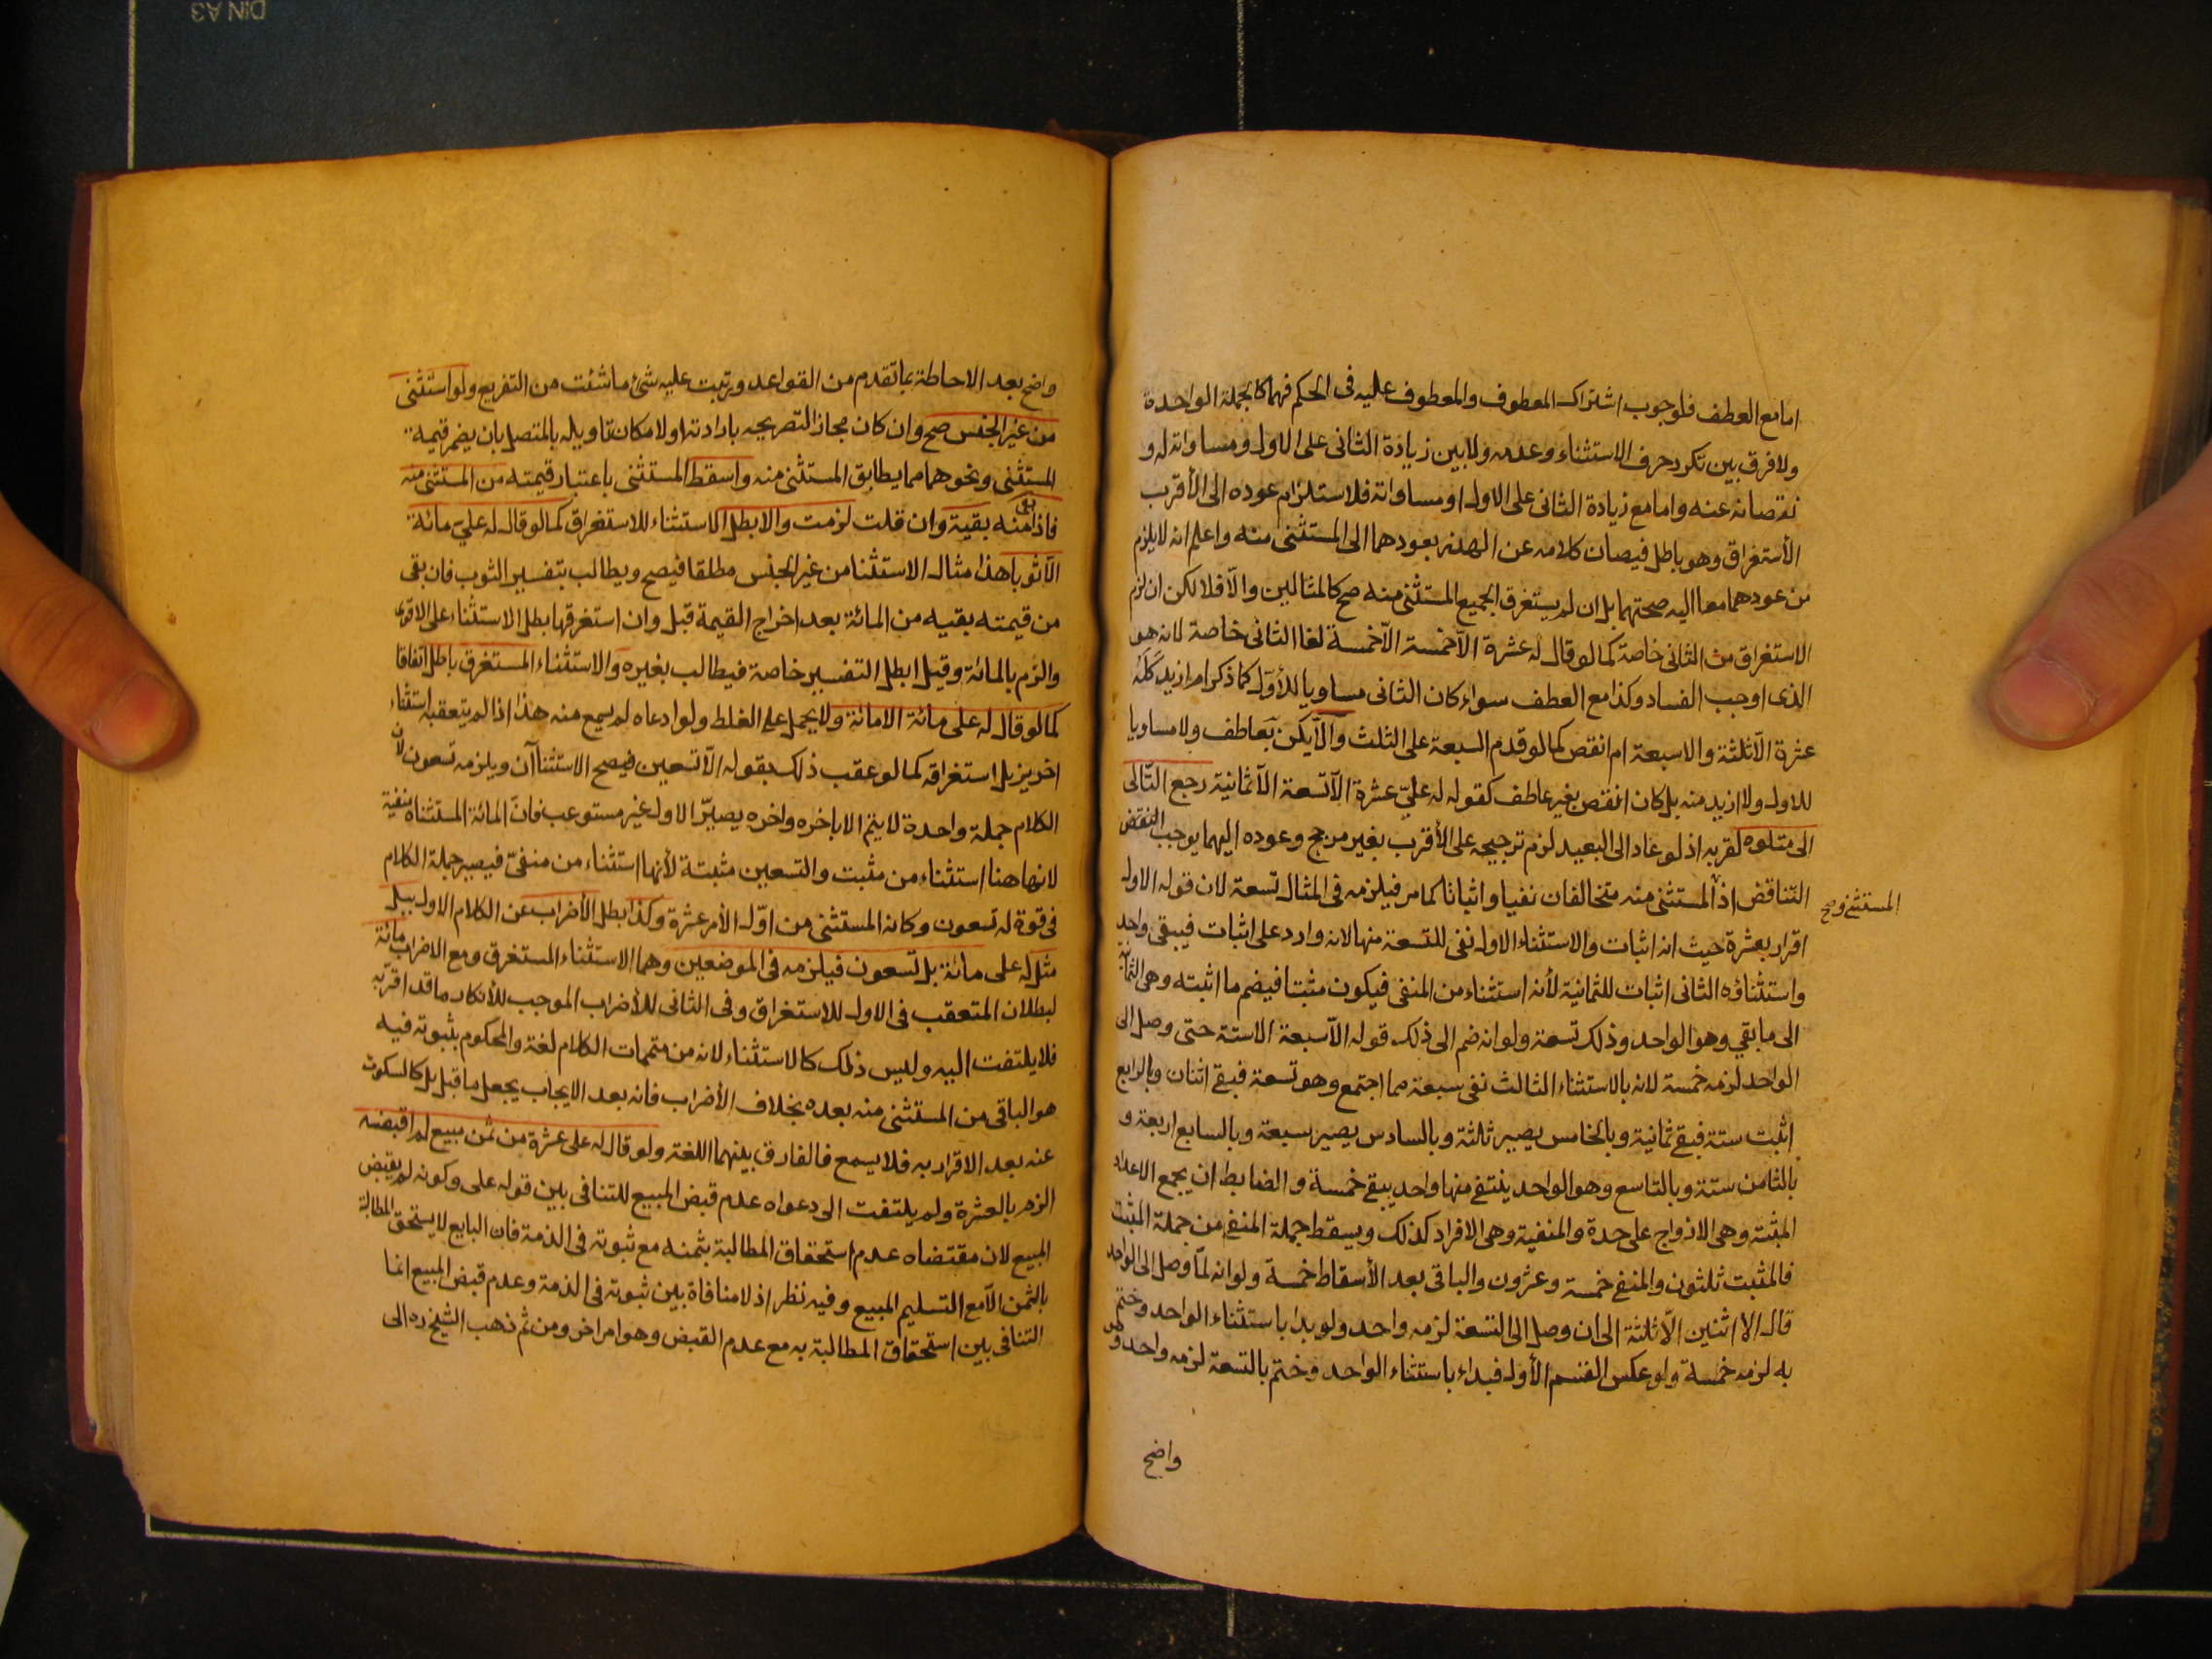 امامع العطف فلوجوب اشتراك المعطوف والمعطوف عليه فى الحكم فهما كالجملة الواحدة
ولا فرق بين تكرر حرف الاستثناء وعدمه ولا بين زيادة الثانى على الاول ومساواته له و
نقصانه عنه واما مع زيادة الثانى على الاول او مساواته فلاستلزام عوده الى الأقرب
الأستغراق وهو باطل فيصان كلامه عن الهدر بعودهما الى المستثنى منه واعلم انه لا يلزم
من عودهما معا اليه صحتهما بل ان لم يستغرق الجميع المستثنى منه صح كالمثالين والّا فلا لكن ان لزم
الاستغراق من الثانى خاصة كما لو قال له عشرة الّا خمسة الّا خمسة لغا الثانى خاصة لانه هو
الذى اوجب الفساد وكذا مع العطف سواء كان الثانى مساويا للأوّل كما ذكر ام ازيد كَلَهُ
عشرة الّا ثلثة والا سبعة ام انقص كما لو قدم السبعة على الثلث والّا يكن بعاطف ولا مساويا
للاول ولا ازيد منه بل كان انقص بغير عاطف كقوله له علىّ عشرة الّا تسعة الّا ثمانية رجع التالى
الى متلوه لقربه اذ لو عاد الى البعيد لزم ترجيحه على الأقرب بغير مرجح وعوده اليهما يوجب النقض
التناقض اذ المستثنى منه متخالفان نفيا واثباتا كما مر فيلزمه فى المثال تسعة لان قوله الاول
المستثنى و صح
اقرار بعشرة حيث انه اثبات والاستثناء الاول نفى للتسعة منها لانه وارد على اثبات فيبقى واحد
واستثناؤه الثانى اثبات للثمانية لأنه استثناء من المنفى فيكون مثبتا فيضم ما اثبته وهى الثمانية
الى ما بقي وهو الواحد وذلك تسعة ولو انه ضم الى ذلك قوله الّا سبعة الا ستة حتى وصل الى
الواحد لزمه خمسة لانه بالاستثناء الثالث نفى سبعة مما اجتمع وهو تسعة فبقى اثنان وبالرابع
اثبت ستة فبقى ثمانية وبالخامس يصير ثلثة وبالسادس يصير سبعة وبالسابع اربعة و
بالثامن ستة وبالتاسع وهو الواحد ينتفى منها واحد يبقى خمسة والضابط ان يجمع الاعداد
المثبتة وهى الازواج على حدة والمنفية وهى الافراد كذلك ويسقط جملة المنفى من جملة المثبت
فالمثبت ثلثون والمنفى خمسة وعشرون والباقى بعد الأسقاط خمسة ولو انه لمّا وصل الى الواحد
قال الا اثنين الّا ثلثة الى ان وصل الى التسعة لزمه واحد ولو بدا باستثناء الواحد وختم
به لزمه خمسة ولو عكس القسم الأول فبداء باستثناء الواحد وختم بالتسعة لزمه واحد وهو
واضح
واضح بعد الاحاطة بما تقدم من القواعد ورتبت عليه شئ ما شئت من التفريع ولو استثنى
من غير الجنس صح وان كان مجازا لتصريحه بارادته او لامكان تاويله بالمتصل بان يضمر قيمه
المستثنى ونحوهما مما يطابق المستثنى منه واسقط المستثنى باعتبار قيمته من المستثنى منه
فاذا بقى منه بقية وان قلت لزمت والا بطل الاستثناء للاستغراق كما لو قال له علىّ مائة
الّا ثوبا هذا مثال الاستثنا من غير الجنس مطلقا فيصح ويطالب بتفسير الثوب فان بقى
من قيمته بقيه من المائة بعد اخراج القيمة قبل وان استغرقها بطل الاستثناء على الاقوى
والزم بالمائة وقيل ابطل التفسير خاصة فيطالب بغيره والاستثناء المستغرق باطل اتفاقا
كما لو قال له على مائة الا مائة ولا يحمل على الغلط ولو ادعاه لم يسمع منه هذا اذا لم يتعقبه استثناء
اخر يزيل استغراقه كما لو عقب ذلك بقوله الّا تسعين فيصح الاستثناآن ويلزمه تسعون لان
الكلام جملة واحدة لا يتم الا باخره واخره يصيرّ الاول غير مستوعب فانّ المائة المستثناه منفية
لانها هنا استثناء من مثبت والتسعين مثبتة لأنها استثناء من منفىّ فيصير جملة الكلام
فى قوة له تسعون وكانه المستثنى من اوّل الأمر عشرة وكذا بطل الأضراب عن الكلام الاول ببل
مثل له على مائة بل تسعون فيلزمه فى الموضعين وهما الاستثناء المستغرق ومع الاضراب مائة
لبطلان المتعقب فى الاول للاستغراق وفى الثانى للأضراب الموجب للأنكار ما قد اقرّ به
فلا يلتفت اليه وليس ذلك كالاستثناء لانه من متممات الكلام لغة والمحكوم بثبوته فيه
هو الباقى من المستثنى منه بعده بخلاف الأضراب فانه بعد الايجاب يجعل ما قبل بل كالسكوت
عنه بعد الاقرار به فلا يسمع فالفارق بينهما اللغة ولو قال له على عشرة من ثمن مبيع لم اقبضه
الزم بالعشرة ولم يلتفت الى دعواه عدم قبض المبيع للتنافى بين قوله على وكونه لم يقبض
المبيع لان مقتضاه عدم استحقاق المطالبة بثمنه مع ثبوته فى الذمة فان البايع لا يستحق المطالبة
بالثمن الّا مع التسليم المبيع وفيه نظر اذ لا منافاة بين ثبوته فى الذمة وعدم قبض المبيع انما
التنافى بين استحقاق المطالبة به مع عدم القبض وهو امر اخر ومن ثم ذهب الشيخ ره الى